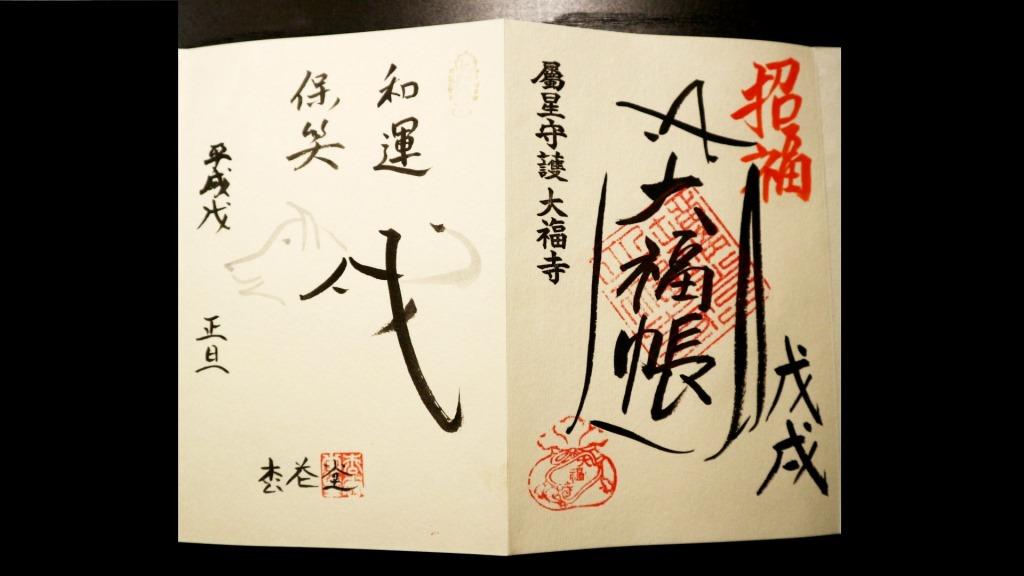 招福
大福帳
戊戌
屬星守護 大福寺
福
和運
保笑
戌
平成戊戌
正旦